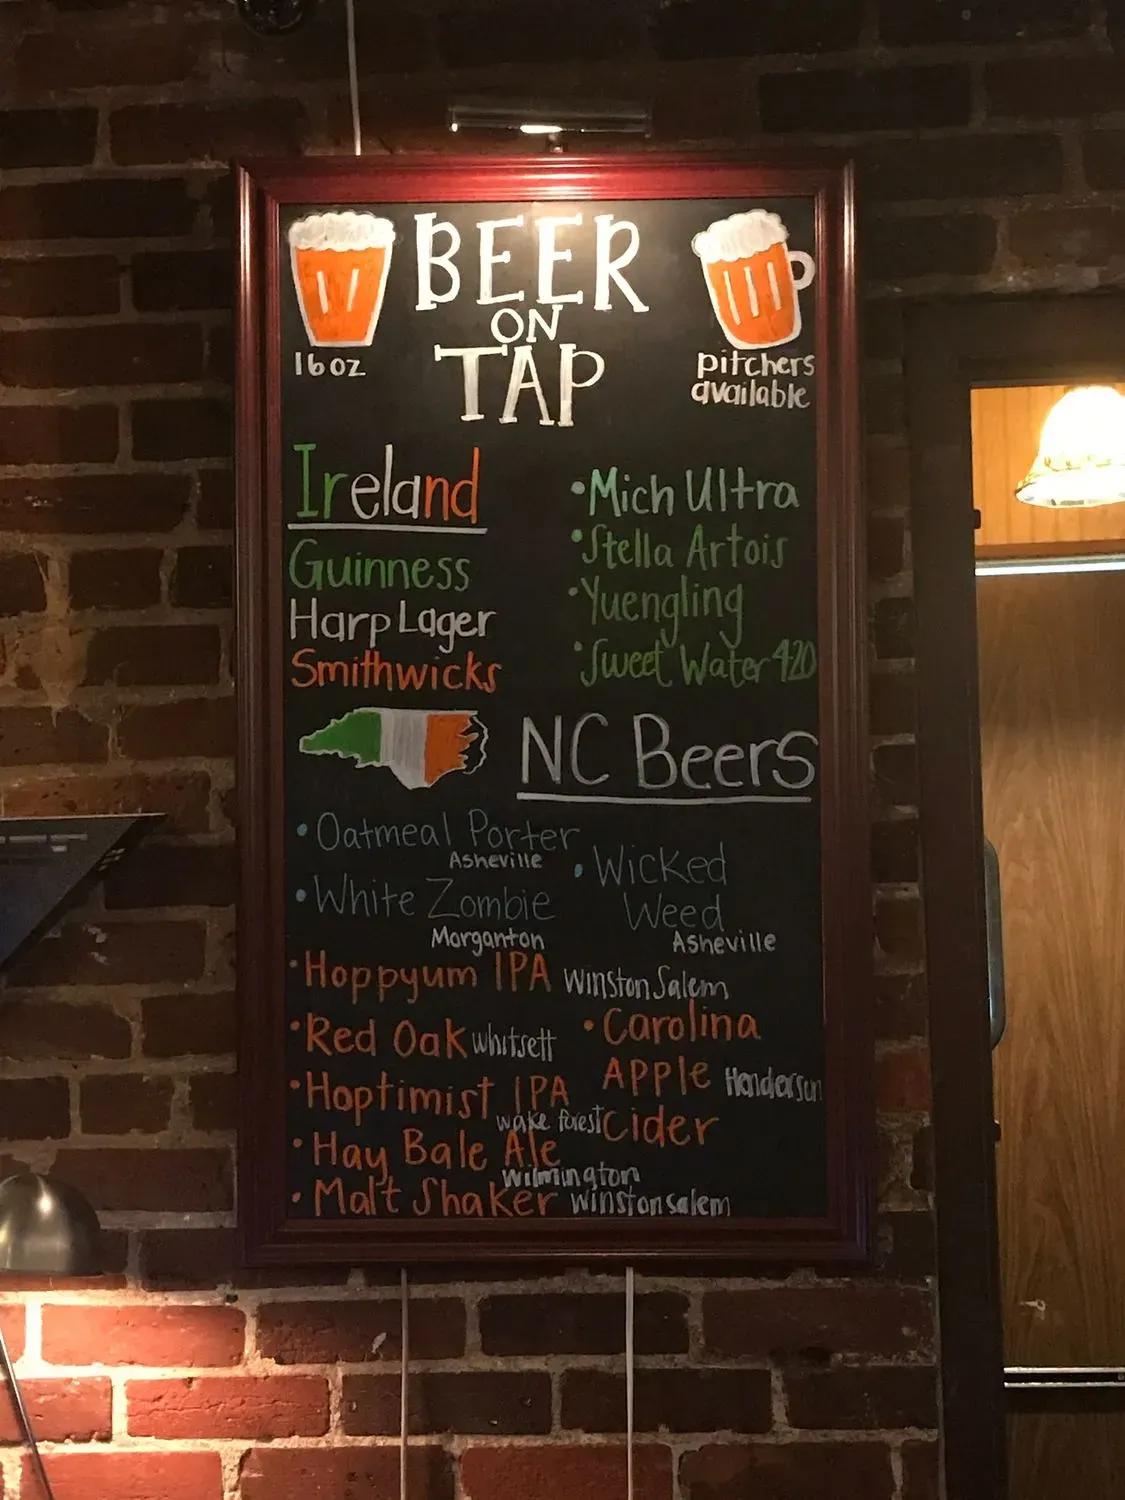 BEER
ON
TAP
16oz
pitchers
available
Ireland
Guinness
Harp Lager
Smithwicks
•Mich Ultra
•Stella Artois
•Yuengling
•Sweet Water 420
NC Beers
•Oatmeal Porter
Asheville
•White Zombie
Morganton
•Wicked
Weed
Asheville
•Hoppyum IPA Winston Salem
•Red Oak whitsett
•Carolina
Apple Henderson
Cider
•Hoptimist IPA
wake forest
•Hay Bale Ale
wilmington
•Malt Shaker winston salem